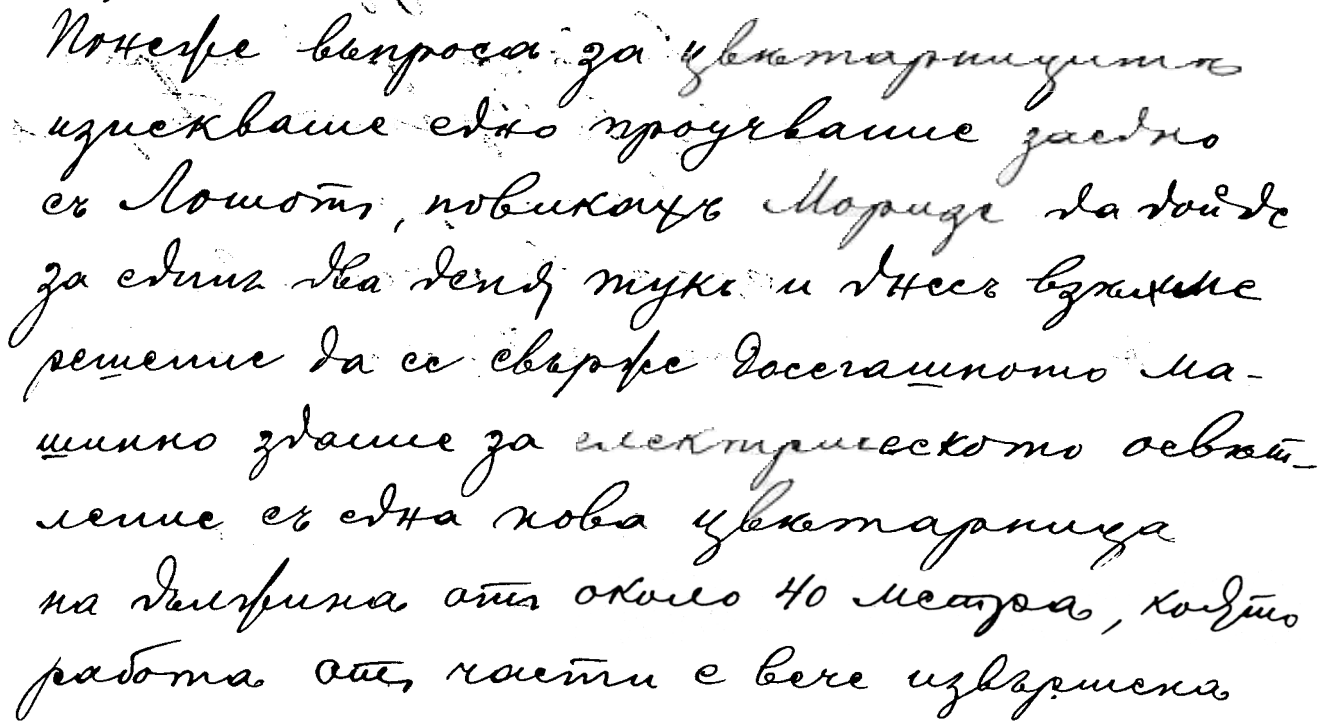 Понеже въпроса за цвѣтарницитѣ
изискваше едно проучвание заедно
съ Лошотъ, повикахъ Моризе да дойде
за единъ два деня тукъ и днесъ взѣхме
решение да се свърже досегашното ма-
шинно здание за електрическото освѣт-
ление съ една нова цвѣтарница
на дължина отъ около 40 метра, която
работа отъ части е вече извършена